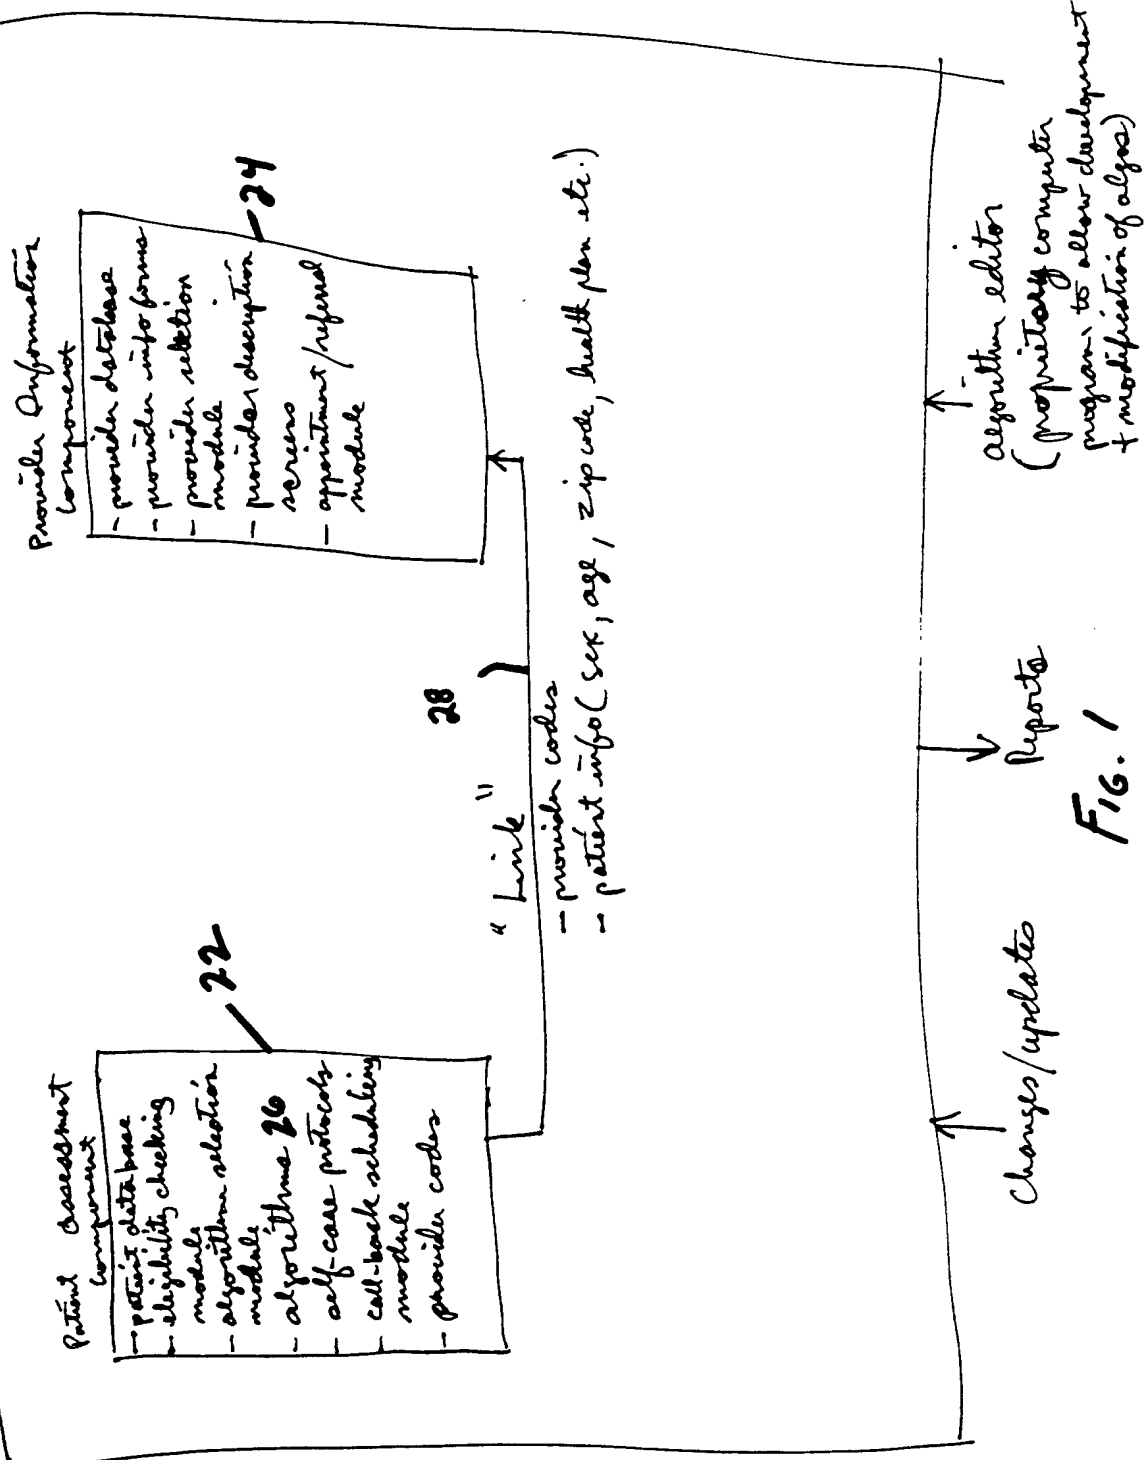 Patient assessment
component
- patient database
- eligibility checking
module
- algorithm selection
module
- algorithms 26
- self-care protocols
- call-back scheduling
module
- provider codes
22
Provider Information
component
- provider database
- provider info forms
- provider selection
module
- provider description
screens
- appointment/referral
module
24
28
"Link"
- provider codes
- patient info (sex, age, zip code, health plan etc.)
Changes/updates
Reports
algorithm editor
(proprietary computer
program to allow development
+ modification of algos)
FIG. 1